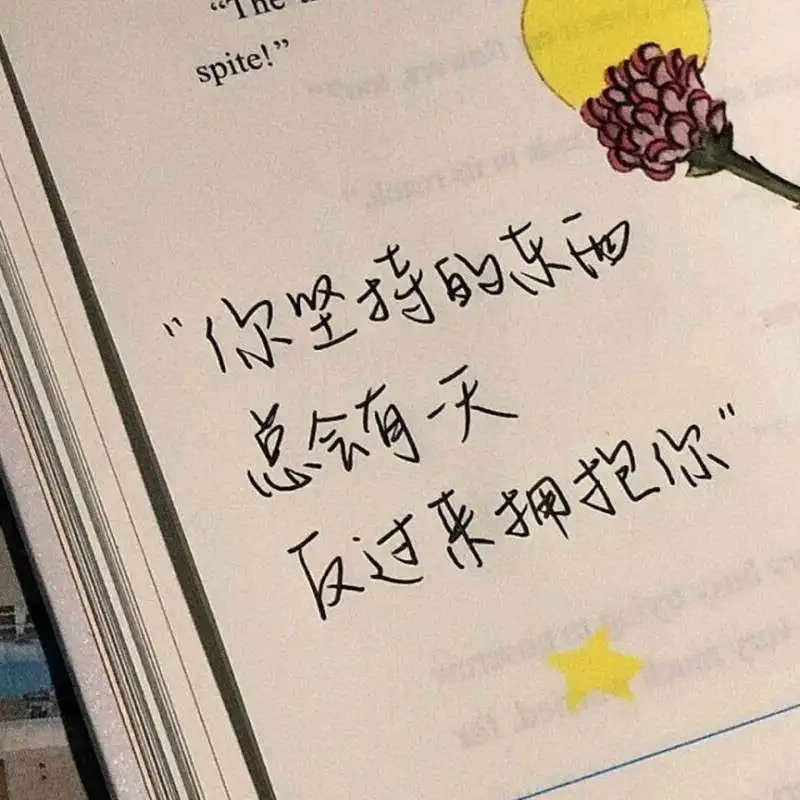 “The
spite!”
“你坚持的东西
总会有一天
反过来拥抱你”